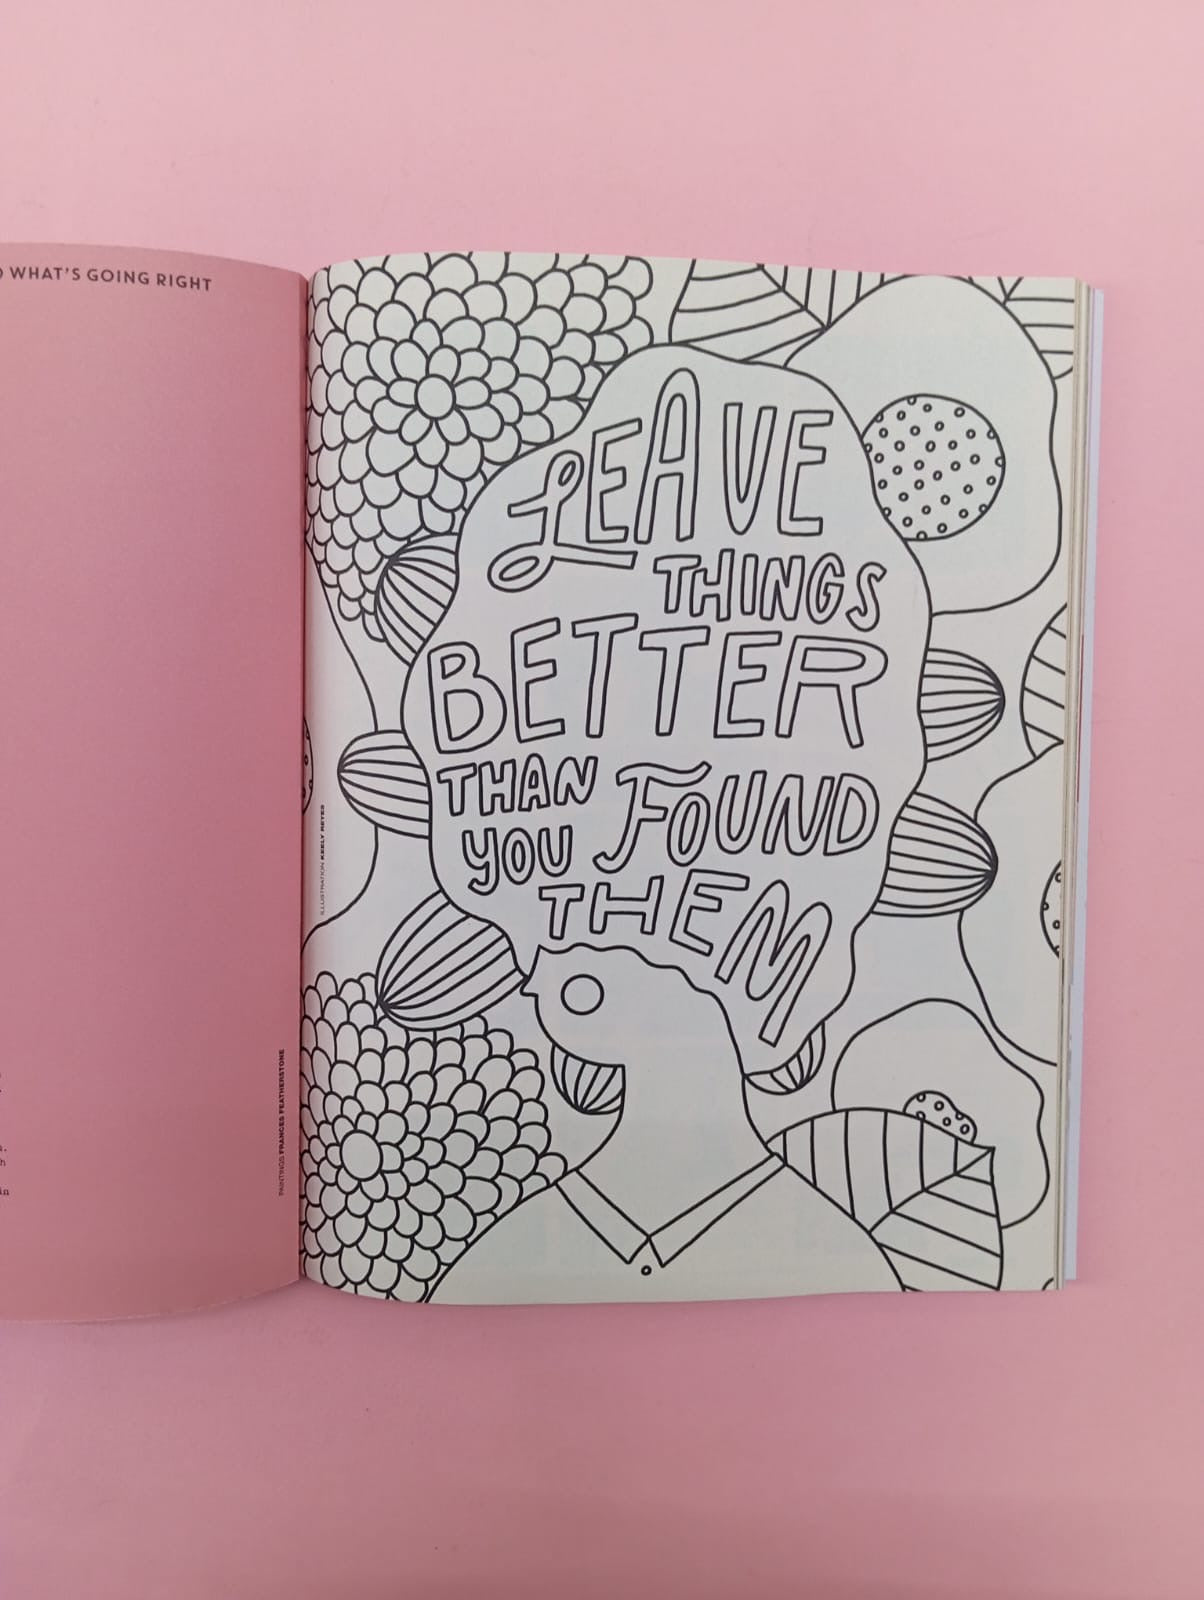 WHAT'S GOING RIGHT
PAINTINGS FRANCES FEATHERSTONE
ILLUSTRATION KEELY REYES
LEAVE
THINGS
BETTER
THAN FOUND
YOU
THEM